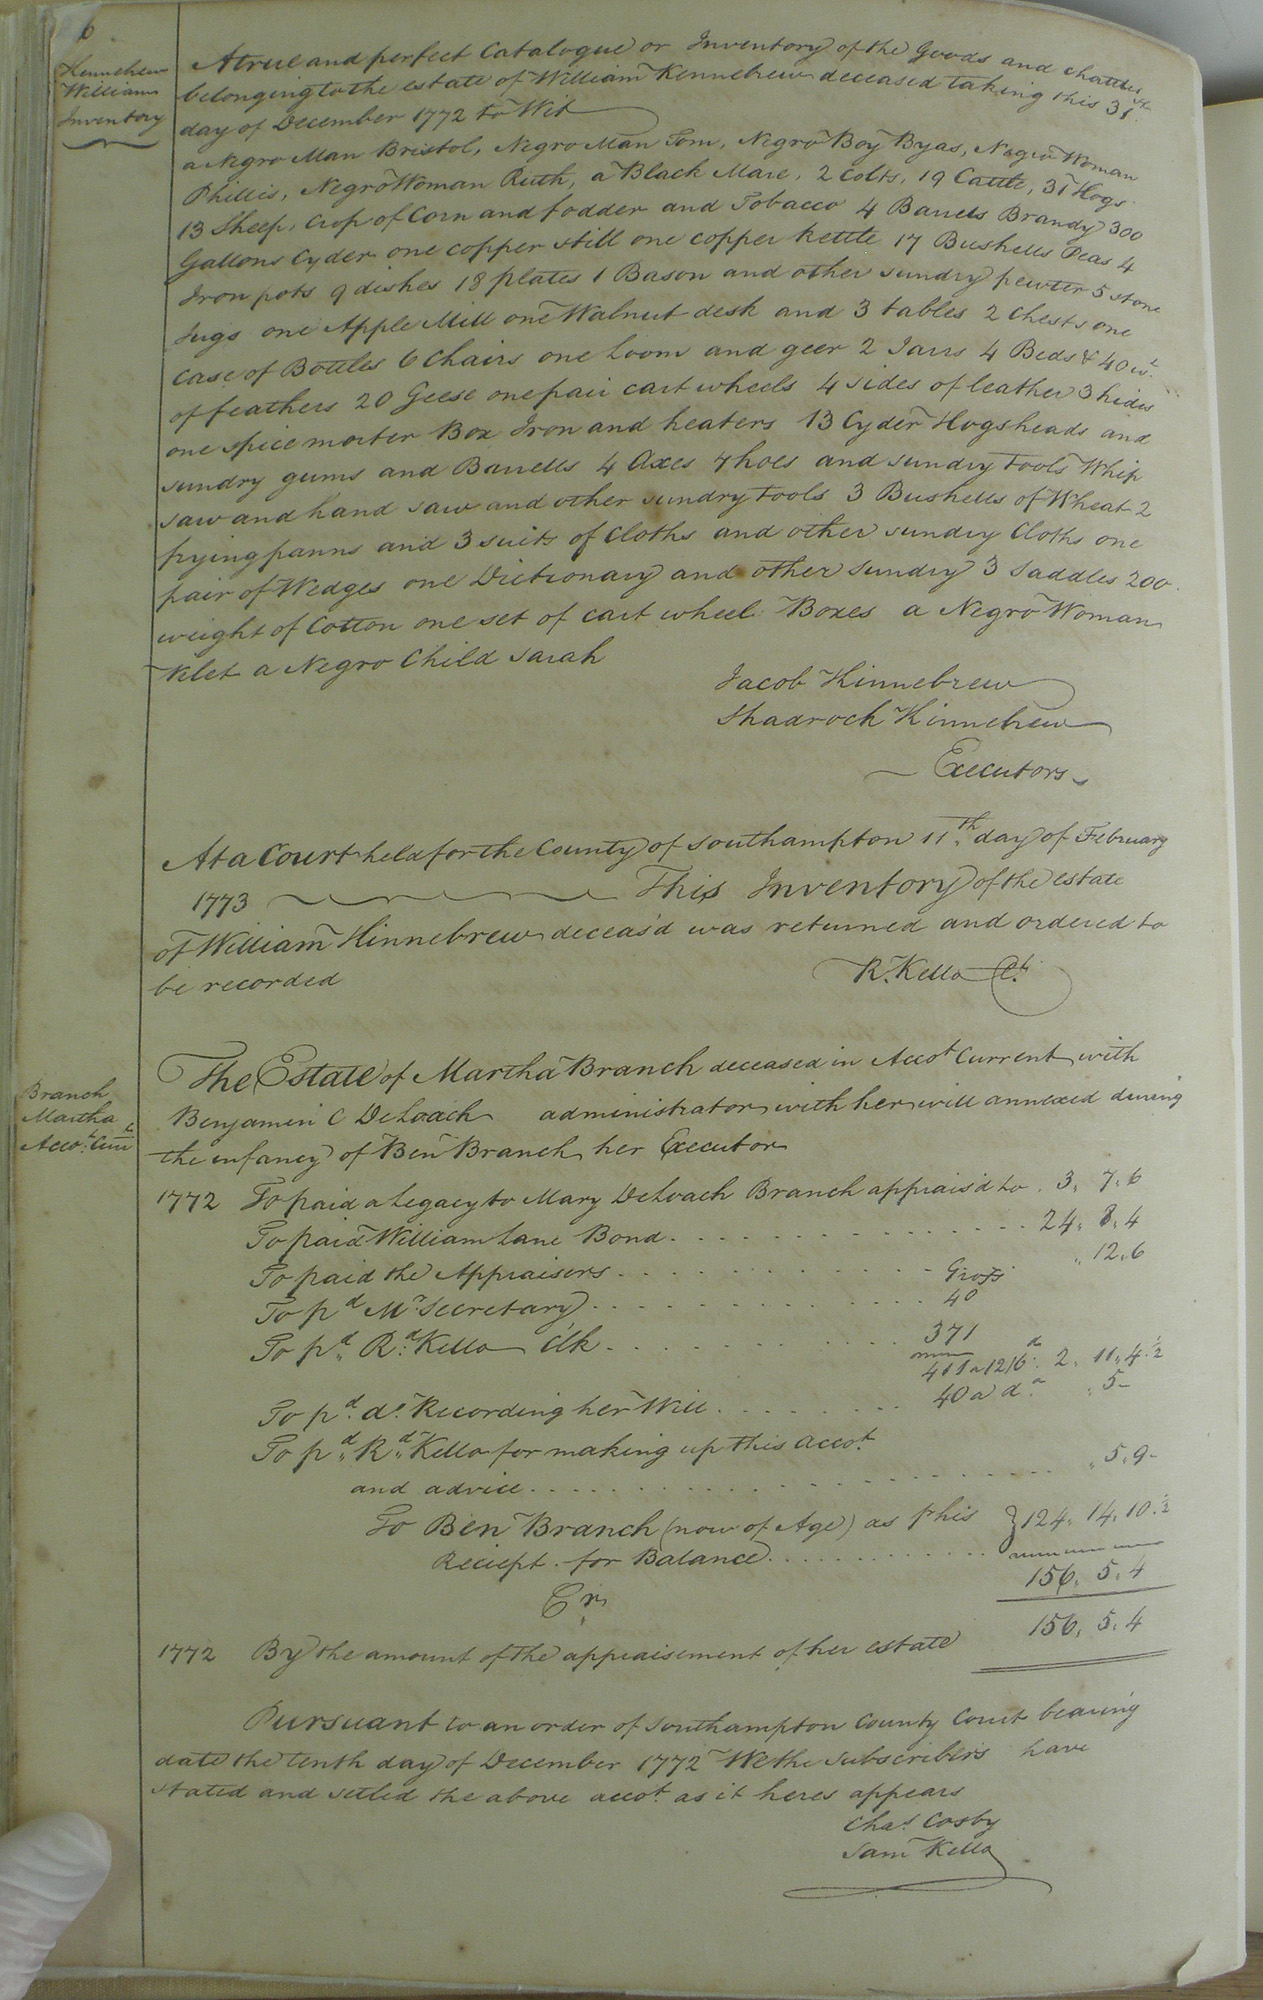 6
Hennebrew
William
Inventory
A true and perfect Catalogue or Inventory of the Goods and chattles
belonging to the estate of William Kennebrew deceased taking this 31st
day of December 1772 to Wit
a Negro Man Bristol, Negro Man Tom, Negro Boy Byas, Negro Woman
Phillis, Negro Woman Ruth, a Black Mare, 2 Colts, 19 Cattle, 31 Hogs
13 Sheep, Crop of Corn and fodder and Tobacco 4 Barrels Brandy 300
Gallons Cyder one copper still one copper kettle 17 Bushells Peas 4
Iron pots 9 dishes 18 plates 1 Bason and other sundry pewter 5 stone
Jugs one Apple Mill one Walnut desk and 3 tables 2 Chests one
case of Bottles 6 Chairs one Loom and geer 2 Jarrs 4 Beds & 40 wt.
of feathers 20 Geese one pair cart wheels 4 sides of leather 3 hides
one spice morter Box Iron and heaters 13 Cyder Hogsheads and
sundry gums and Barrells 4 Axes 7 hoes and sundry tools Whip
saw and hand saw and other sundry tools 3 Bushells of Wheat 2
frying panns and 3 suits of Cloths and other sundry Cloths one
pair of Wedges one Dictionary and other sundry 3 Saddles 200
weight of Cotton one set of cart wheel Boxes a Negro Woman
a Negro Child Sarah
Jacob Hinnebrew
Shadrock Hinnebrew
Executors
At a Court held for the County of Southampton 11th day of February
1773 This Inventory of the estate
of William Hinnebrew deceas'd was returned and ordered to
be recorded R. Kello Ct.
Branch
Martha
Acco.t Curr.t
The Estate of Martha Branch deceased in Accot Current with
Benjamin C DeLoach administrator with her will annexed during
the infancy of Ben Branch her Executor
1772 To paid a Legacy to Mary DeLoach Branch appraisd to . 3, 7, 6
To paid William Lane Bond 24, 8, 4
To paid the Appraisers " 12, 6
Gross
To pd Mr. Secretary 40
To pd. Rd. Kello Clk 371
411 a 12/6 2, 11, 4 1/2
To pd. do. Recording her Will 40 a do " 5 -
To pd. Rd. Kello for making up this accot
and advice " 5, 9 -
To Ben Branch (now of Age) as p his } 124, 14, 10 1/2
Reciept for Balance
156, 5, 4
Cr
1772 By the amount of the appraisement of her estate 156, 5, 4
Pursuant to an order of Southampton County Court bearing
date the tenth day of December 1772 We the Subscribers have
stated and setled the above accot. as it heres appears
Chas. Cosby
Sam Kello